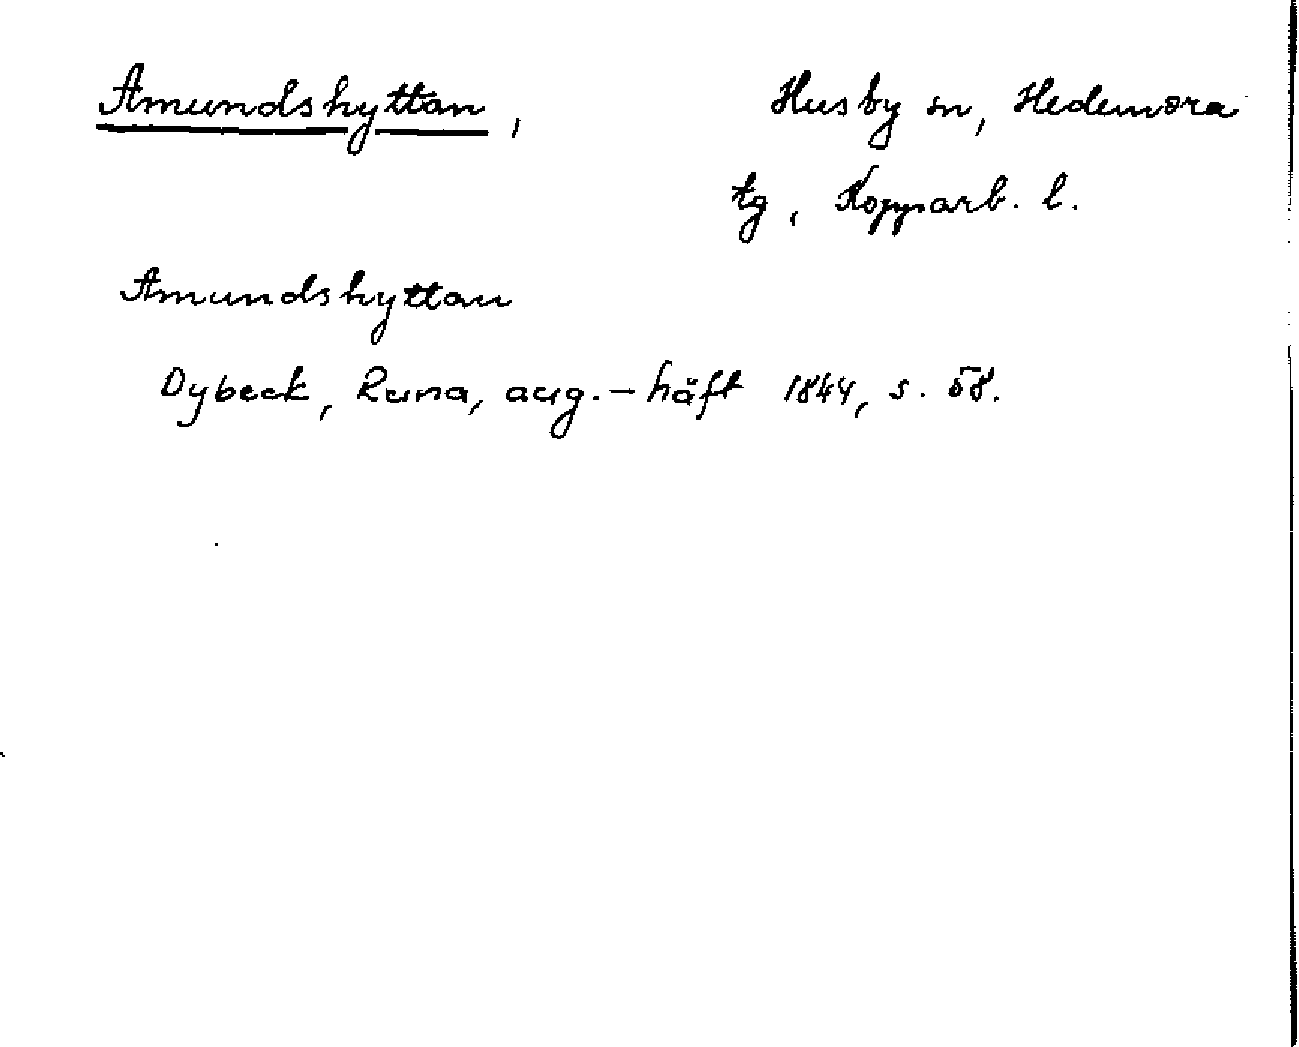 Amundshyttan, Husby sn, Hedemora
tg, Kopparb. l.
Amundshyttan
Dybeck, Runa, aug.-häft 1844, s. 58.